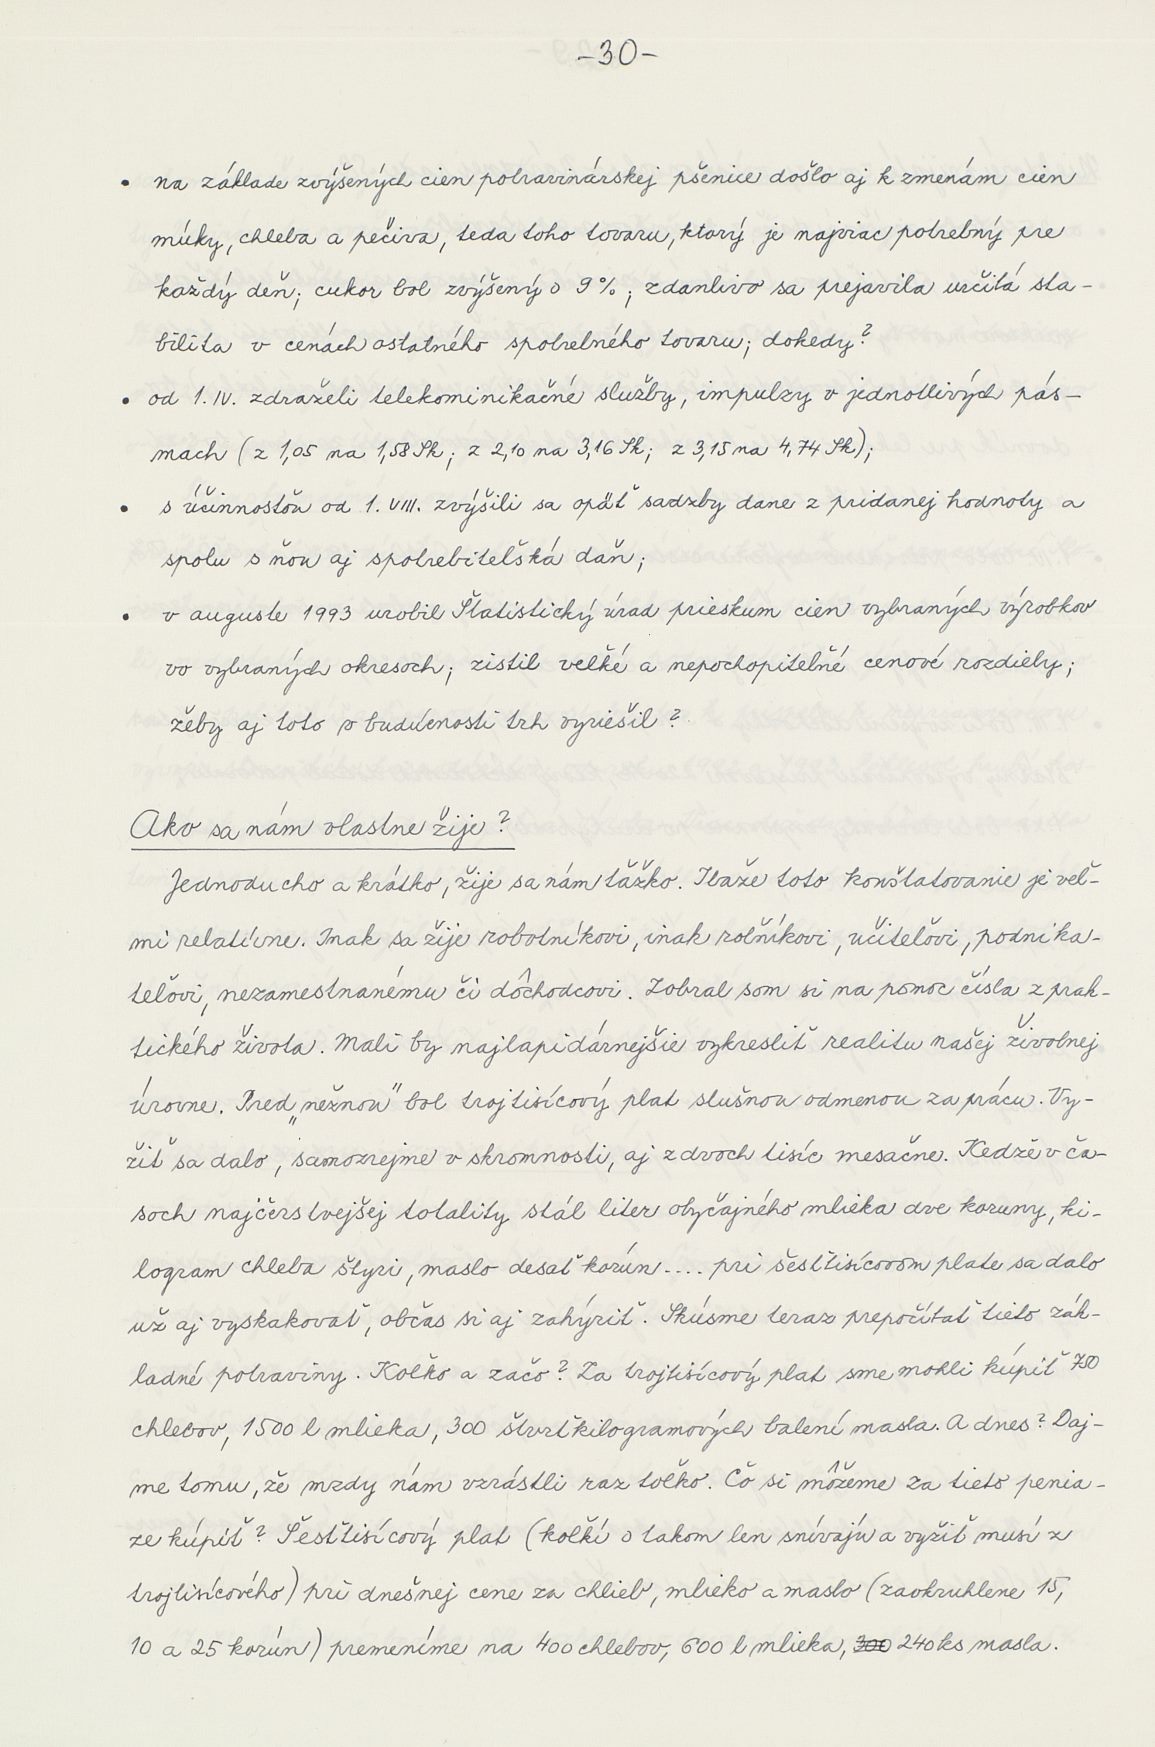 -30-
• na základe zvýšených cien potravinárskej pšenice došlo aj k zmenám cien
múky, chleba a pečiva, teda toho tovaru, ktorý je najviac potrebný pre
každý deň; cukor bol zvýšený o 9%; zdanlivo sa prejavila určitá sta-
bilita v cenách ostatného spotrebného tovaru; dokedy?
• od 1. IV. zdraželi telekominikačné služby, impulzy v jednotlivých pás-
mach (z 1,05 na 1,58 Sk; z 2,10 na 3,16 Sk; z 3,15 na 4,74 Sk);
• s účinnosťou od 1. VIII. zvýšili sa opäť sadzby dane z pridanej hodnoty a
spolu s ňou aj spotrebiteľská daň;
• v auguste 1993 urobil Štatistický úrad prieskum cien vybraných výrobkov
vo vybraných okresoch; zistil veľké a nepochopiteľné cenové rozdiely;
žeby aj toto v budúcnosti trh vyriešil?
Ako sa nám vlastne žije?
Jednoducho a krátko, žije sa nám ťažko. Ibaže toto konštatovanie je veľ-
mi relatívne. Inak sa žije robotníkovi, inak roľníkovi, učiteľovi, podnika-
teľovi, nezamestnanému či dôchodcovi. Zobral som si na pomoc čísla z prak-
tického života. Mali by najlapidárnejšie vykresliť realitu našej životnej
úrovne. Pred „nežnou" bol trojtisícový plat slušnou odmenou za prácu. Vy-
žiť sa dalo, samozrejme v skromnosti, aj z dvoch tisíc mesačne. Kedže v ča-
soch najčerstvejšej totality stál liter obyčajného mlieka dve koruny, ki-
logram chleba štyri, maslo desať korún.... pri šesťtisícovom plate sa dalo
už aj vyskakovať, občas si aj zahýriť. Skúsme teraz prepočítať tieto zák-
ladné potraviny. Koľko a začo? Za trojtisícový plat sme mohli kúpiť 750
chlebov, 1500 l mlieka, 300 štvrťkilogramových balení masla. A dnes? Daj-
me tomu, že mzdy nám vzrástli raz toľko. Čo si môžeme za tieto penia-
ze kúpiť? Šesťtisícový plat (koľkí o takom len snívajú a vyžiť musí z
trojtisícového) pri dnešnej cene za chlieb, mlieko a maslo (zaokruhlene 15,
10 a 25 korún) premeníme na 400 chlebov, 600 l mlieka, 300 240 ks masla.